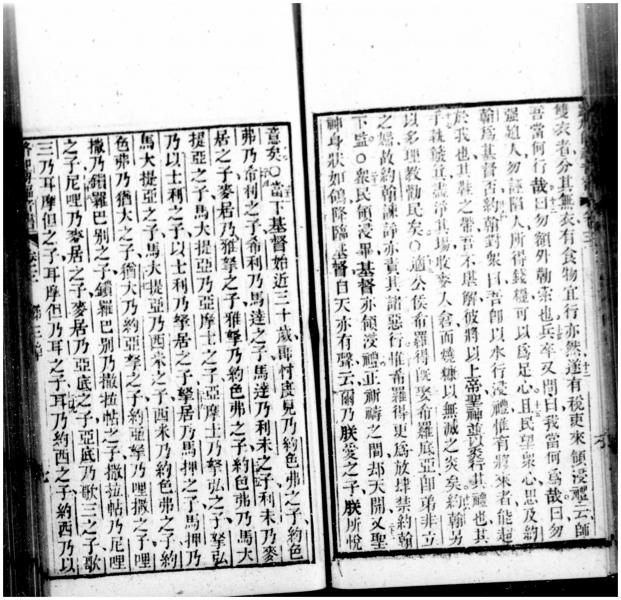 雙衣者分其無衣有食物宜行亦然遂有稅吏來領浸禮云師
吾當何行哉曰勿額外勒索也兵卒又問曰我當何為哉曰勿
强迫人勿誣陷人所得錢糧可以為足心且民望衆心思及約
翰為基督否約翰對衆曰吾卽以水行浸禮惟有將來者能起
於我也其鞋之帶吾不堪解彼將以上帝聖神並以炎行其禮也其
手執簸箕盡淨其場收麥入倉而燒糠以無滅之炎矣約翰另
以多理教勸民矣〇適公侯希羅得旣娶希羅底亞卽弟非立
之妻故約翰諫諍亦責其諸惡行惟希羅得更為放肆禁約翰
下監〇衆民領浸畢基督亦領浸禮正祈禱之間却天開又聖
神身狀如鴿降臨基督自天亦有聲云爾乃朕愛之子朕所悅
意矣〇當下基督始近三十歲兩忖度見乃約色弗之子約色
弗乃希利之子希利乃馬達之子馬達乃利未之子利未乃麥
居之子麥居乃雅拏之子雅拏乃約色弗之子約色弗乃馬大
提亞之子馬大提亞乃亞摩士之子亞摩士乃拏弘之子拏弘
乃以士利之子以士利乃拏居之子拏居乃馬押之子馬押乃
馬大提亞之子馬大提亞乃西米之子西米乃約色弗之子約
色弗乃猶大之子猶大乃約亞拏之子約亞拏乃哩撒之子哩
撒乃鎖羅巴別之子鎖羅巴別乃撒拉帖之子撒拉帖乃尼哩
之子尼哩乃麥居之子麥居乃亞底之子亞底乃歌三之子歌
三乃耳摩但之子耳摩但乃耳之子耳乃約西之子約西乃以